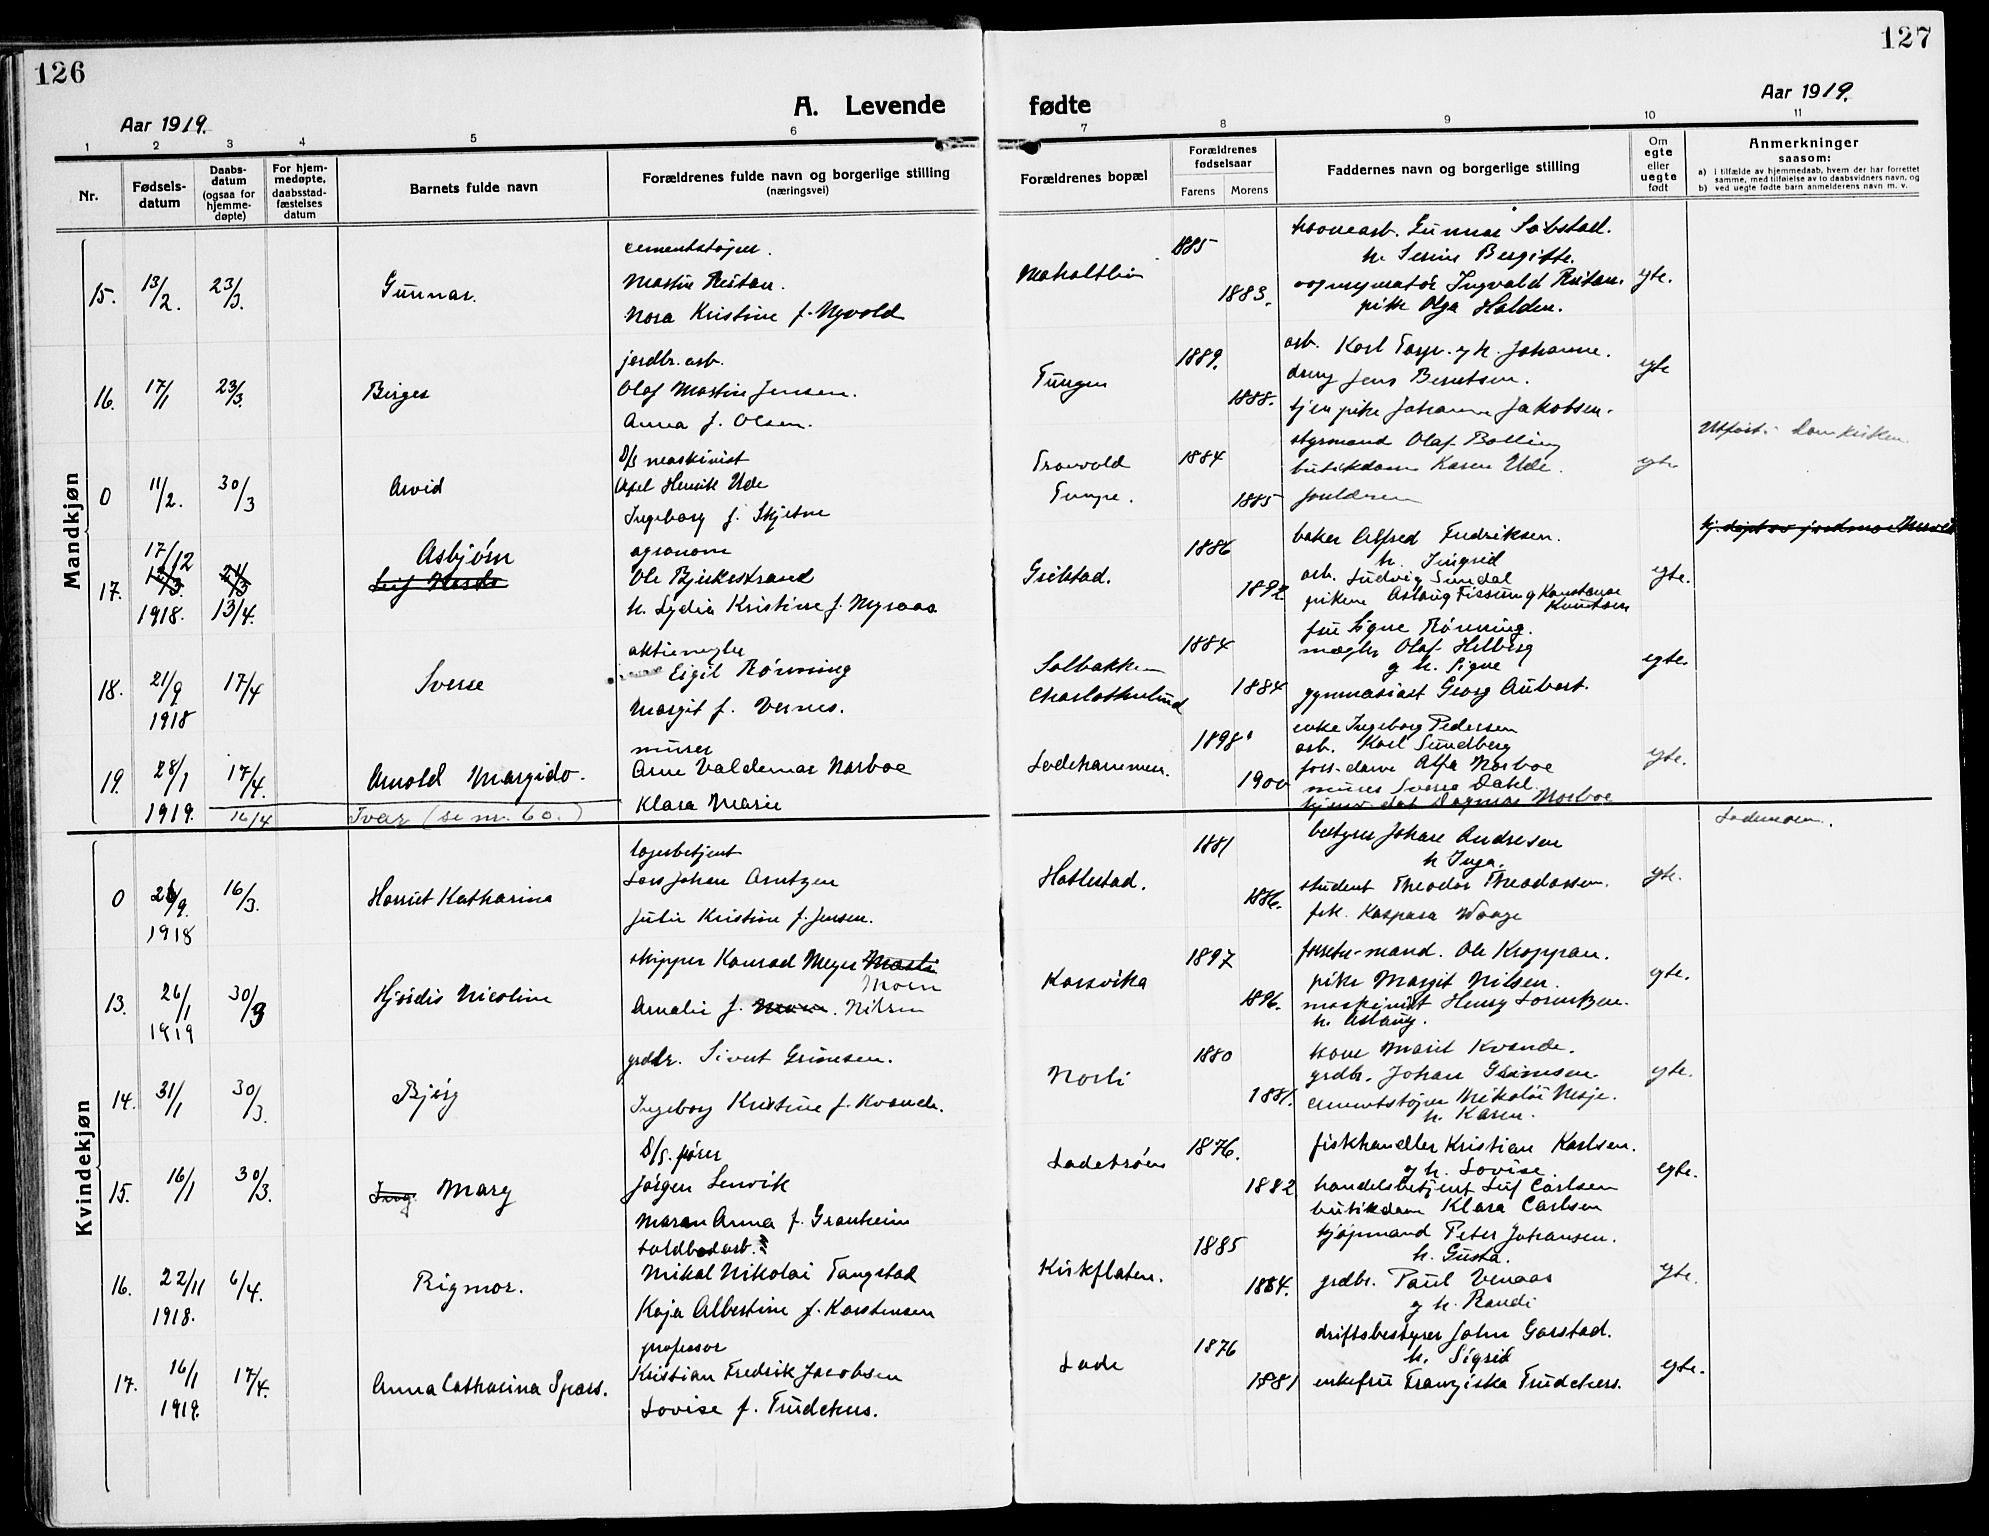 126
127
Aar 1919.
A. Levende fødte
Aar 1919.
1 2 3 4 5 6 7 8 9 10 11
Nr.
Fødsels-
datum
Daabs-
datum
(ogsaa for
hjemme-
døpte)
For hjem-
medøpte,
daabsstad-
fæstelses
datum
Barnets fulde navn
Forældrenes fulde navn og borgerlige stilling
(næringsvei)
Forældrenes bopæl
Forældrenes
fødselsaar
Farens Morens
Faddernes navn og borgerlige stilling
Om
egte
eller
uegte
født
Anmerkninger
saasom:
a) i tilfælde av hjemmedaab, hvem der har forrettet
samme, med tilføielse av to daabsvidners navn, og
b) ved uegte fødte barn anmelderens navn m. v.
Mandkjøn
15. 13/2. 23/3. Gunnar.
cementstøper.
Martin Reitan.
Nora Kristine f. Nyvold
Moholtlien 1885 1883.
Gunnar Solstad.
h. Serine Bergitte.
Ingvald Reitan.
pike Olga Halden.
egte.
16. 17/1 23/3. Birger
jordbr. arb.
Olaf Martin Jensen.
Anna f. Olsen.
Tungen 1889. 1888.
arb. Karl Torp. og h. Johanne.
dreng Jens Berntsen.
tjen.pike Johanna Jakobsen.
egte
0 11/2. 30/3 Arvid
D/S maskinist
Axel Henrik Ude
Ingeborg f. Skjetne
Tronvold
Tempe. 1884 1885
styrmand Olaf Bolling
butikdame Karen Ude.
forældrene
egte
Utført i Domkirken
17. 17/12 1918. 13/4. Asbjørn
agronom
Ole Bjerkestrand
h. Lydia Kristine f. Myraas
Grilstad. 1886 1892
baker Alfred Fredriksen.
h. Ingrid
arb. Ludvig Sundal
pikene Aslaug Fissum og Konstanse
Knutsen
egte.
18. 21/9 1918 17/4 Sverre
aktiemegler
Eigil Rønning
Margit f. Vernes.
Solbakken
Charlottenlund 1884 1884
fru Signe Rønning.
megler Olaf Hilberg
og h. Signe
gymnasiast Georg Aubert.
egte.
19. 28/1 1919. 17/4. Arnold Margido.
murer
Arne Valdemar Norboe
Klara Marie
Ladehammeren. 1898 1900
enke Ingeborg Pedersen
arb. Karl Sundberg
forr.dame Alfa Norboe
murer Sverre Dahl
Dagmar Norboe
egte.
16/4 Ivar (se nr. 60.)
Lademoen.
Kvindekjøn
0 26/9. 1918 16/3. Harriet Katharina
lagerbetjent
Lars Johan Arntzen
Julie Kristine f. Jensen.
Hatlestad. 1881 1886.
bestyrer Johan Andresen
h Inga.
student Theodor Theodorsen.
frk. Kaspara Waage
egte.
13. 26/1 1919 30/3 Hjørdis Nicoline
skipper Konrad Meyer Moen
Amalie f. Nilsen
Korsvika 1897 1896.
Ole Kroppan.
pike Margit Nilsen.
maskinist Henry Lorentzen.
h. Aslaug.
egte.
14. 31/1 30/3. Bjørg
grdbr. Sivert Grimsen.
Ingeborg Kristine f. Kvande.
Norli 1880 1881.
kone Marit Kvande.
grdbr. Johan Grimsen.
cementstøper Nikolai Moje.
h. Karen.
egte.
15. 16/1 30/3. Mary
D/S. fører
Jørgen Lervik
Maren Anna f. Granheim
Ladebroen 1876. 1882
fiskhandler Kristian Karlsen.
og h. Lovise.
handelsbetjent Leif Carlsen
butikdame Klara Carlsen
egte.
16. 22/11 1918. 6/4. Rigmor.
toldbodarb.
Mikal Nikolai Tangstad
Kaja Albertine f. Karstensen
Kirkeflaten. 1885 1884.
kjøpmand Peter Johansen.
h. Gusta.
grdbr. Paul Venaas
og h. Randi
egte.
17. 16/1 1919. 17/4. Anna Catharina Sparr.
professor
Kristian Fredrik Jacobsen
Lovise f. Trudehus.
Lade 1876 1881
driftsbestyrer John Garstad.
h. Sigrid
enkefru Franziska Trudehus.
egte.